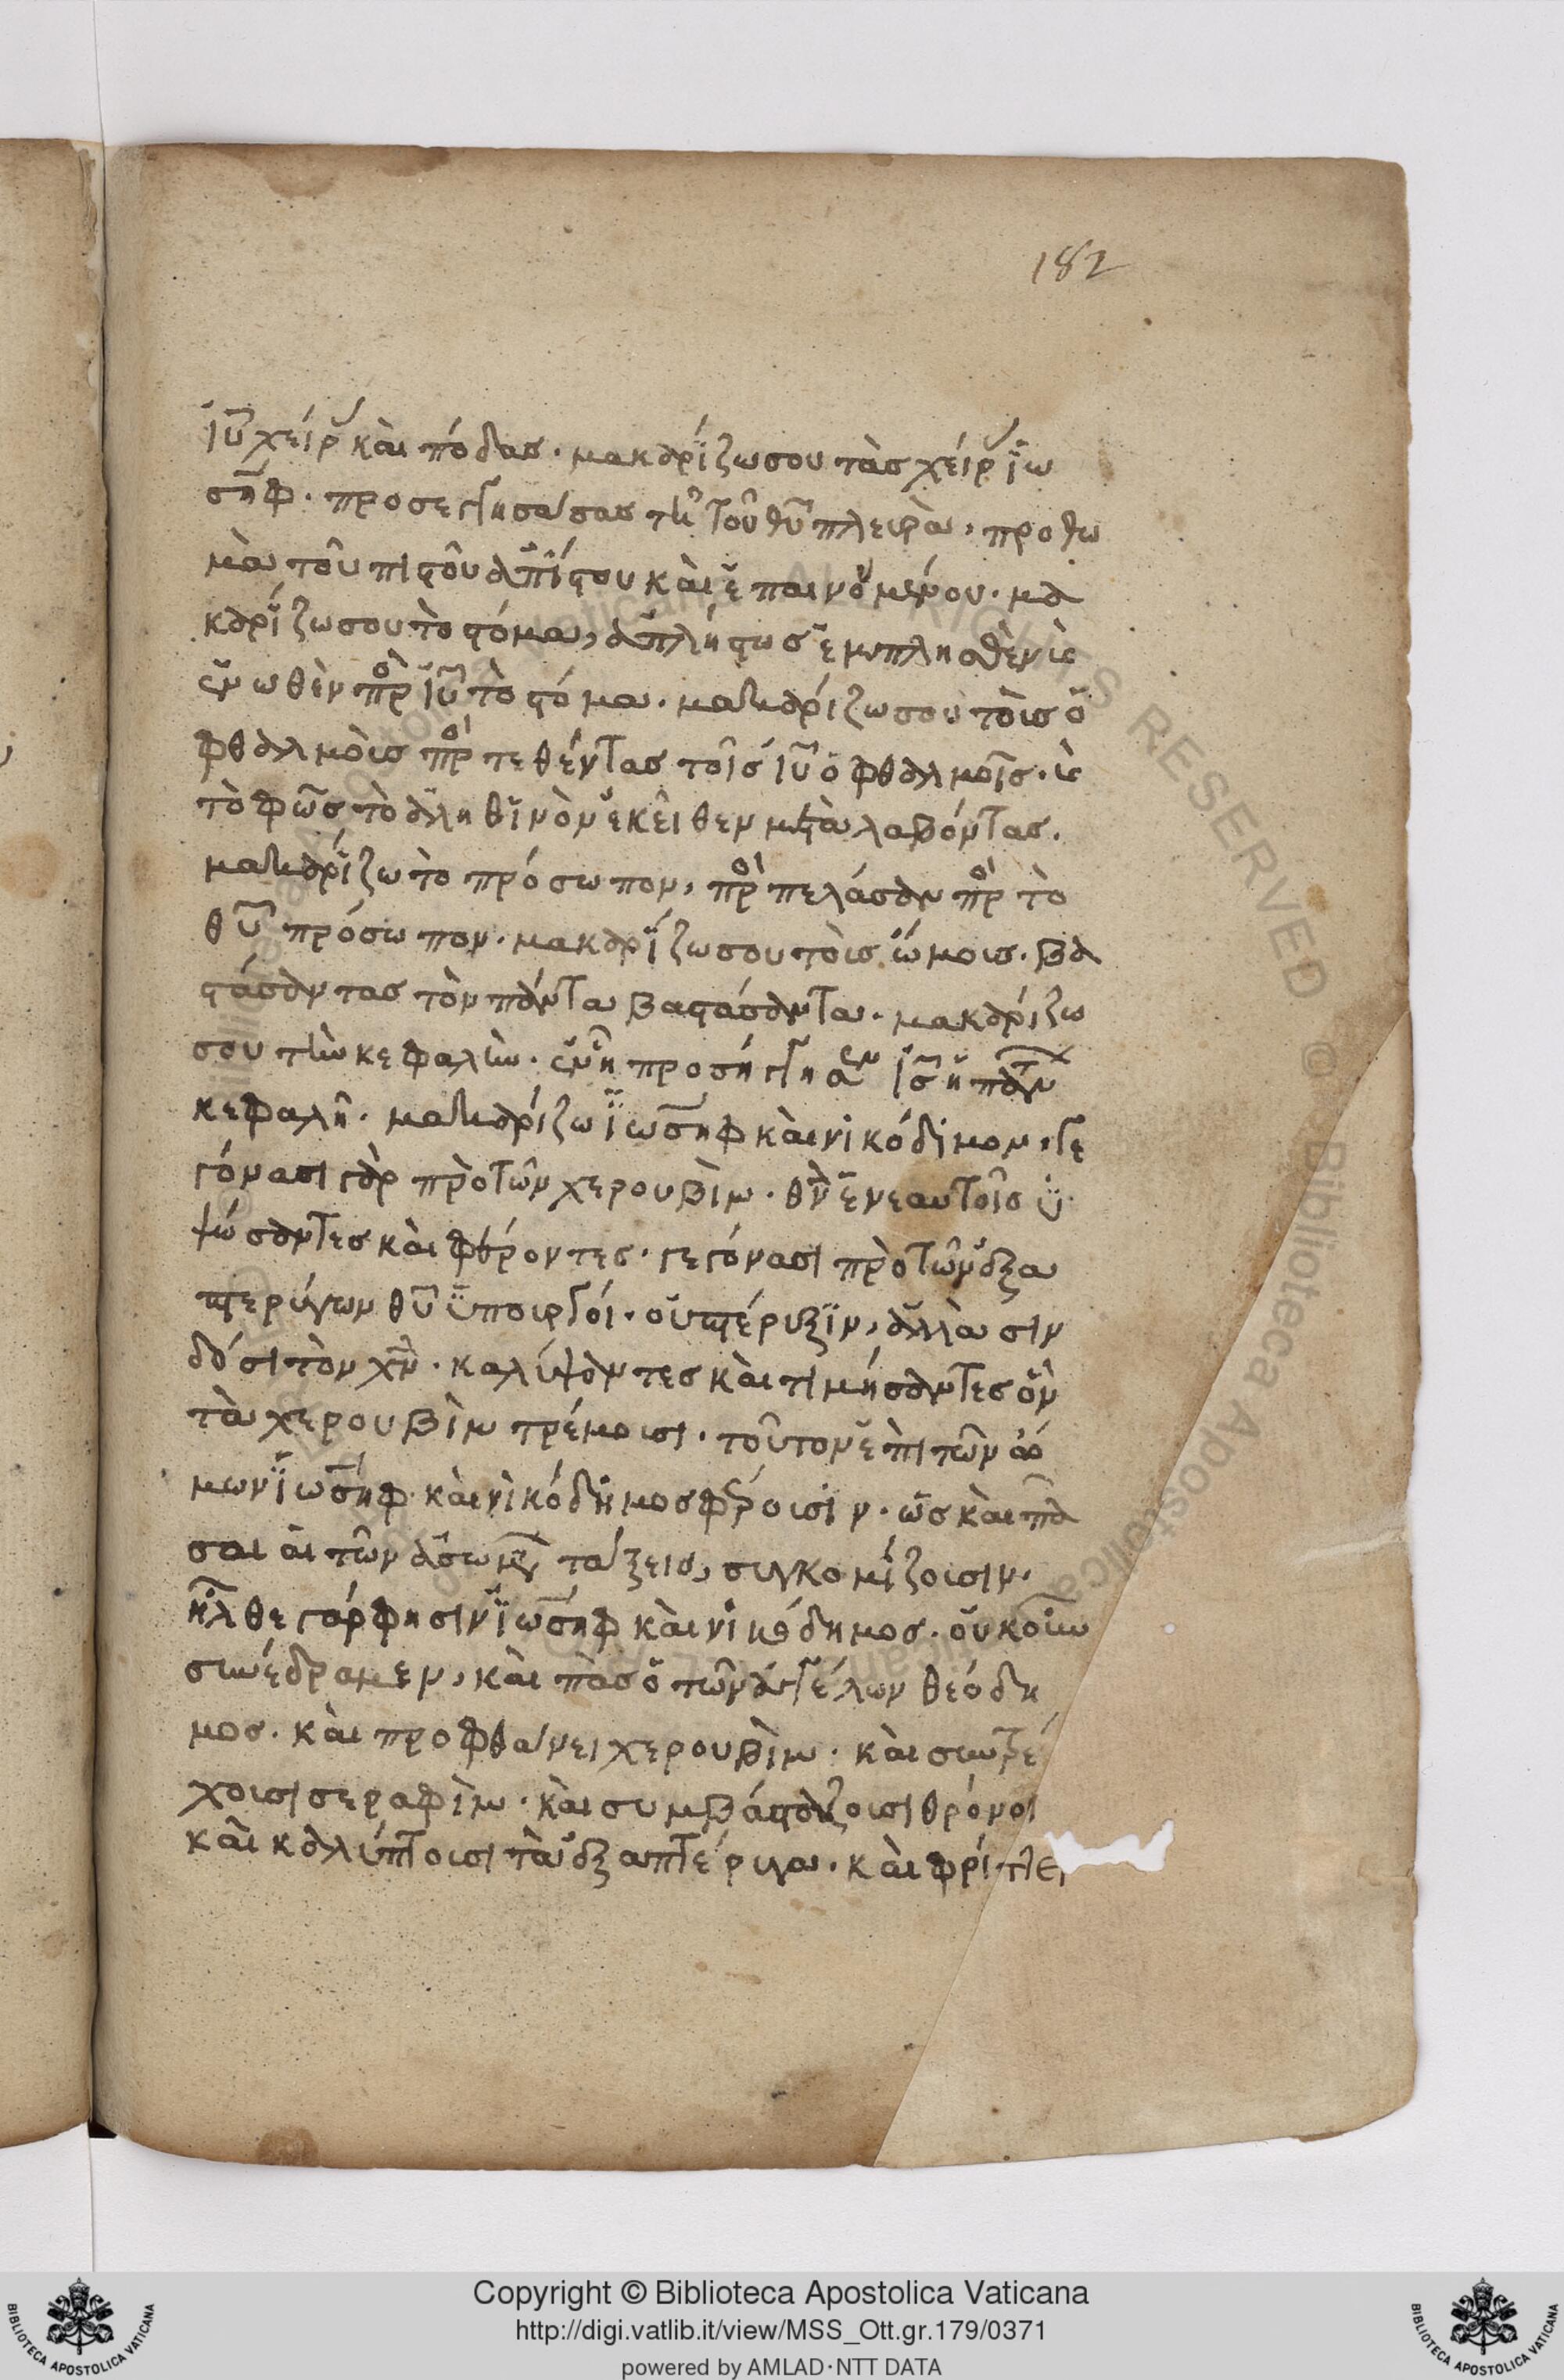 182
ἰυ χεῖρ καὶ πόδας. μακαρίζω σου τὰς χεῖρ ἰω
σηφ. προσεγγησάσας τη τοῦ θυ πλευρὰ, προθω
μὰ τοῦ πιστοῦ ἀπίστου καὶ ἐπαινουμένου. μα
καρίζω σου τὸ στόμα, ἀπλήστως ἐμπλησθὲν κὲ
ἐνωθὲν πρ ἰυ τὸ στόμα. μακαρίζω σου τοὶς ὀ
φθαλμοὶς πρ τεθέντας τοῖς ἰυ ὀφθαλμοῖς. κὲ
τὸ φῶς τὸ ἀληθινὸν ἐκεῖθεν μεταλαβόντας.
μακαρίζω τὸ πρόσωπον, πρ πελάσαν πρ τὸ
θυ πρόσωπον. μακαρίζω σου τοὶς ὤμοις. βα
στάσαντας τὸν πάντα βαστάσαντα. μακαρίζω
σου τὴν κεφαλὴν. ἐν ἧ προσήγγησεν ἰς ἡ πάντ
κεφαλή. μακαρίζω ἰωσηφ καὶ νικόδιμον, γε
γόνασι γὰρ πρὸ τῶν χερουβὶμ. θν ἐν ἑαυτοῖς ὑ
ψώσαντες καὶ φέροντες. γεγόνασι πρὸ τῶν ἑξα
πτερύγων θυ ὑπουργοί. οὐ πτέρυξιν, ἀλλὰ σιν
δόσι τὸν χν. καλύψαντες καὶ τιμήσαντες ὃν
τὰ χερουβὶμ τρέμουσι. τοῦτον ἐπὶ τῶν ὤ
μων ἰωσηφ καὶ νικόδημος φέροισιν. ὡς καὶ πᾶ
σαι αἱ τῶν ἀσωμ τάξεις, συγκομίζοισιν.
ἦλθε γάρ φησιν ἰωσηφ καὶ νικόδημος. οὐκοῦν
συνέδραμεν, καὶ πὰς ὁ τῶν ἀγγέλων θεόδη
μος. καὶ προφθάνει χερουβὶμ. καὶ συντρέ
χοισι σεραφὶμ. καὶ συμβάσταζοισι θρόνοι
καὶ καλύπτοισι τὰ ἑξαπτέριγα. καὶ φρίττει
Copyright © Biblioteca Apostolica Vaticana
http://digi.vatlib.it/view/MSS_Ott.gr.179/0371
powered by AMLAD·NTT DATA
BIBLIOTECA APOSTOLICA VATICANA
BIBLIOTECA APOSTOLICA VATICANA